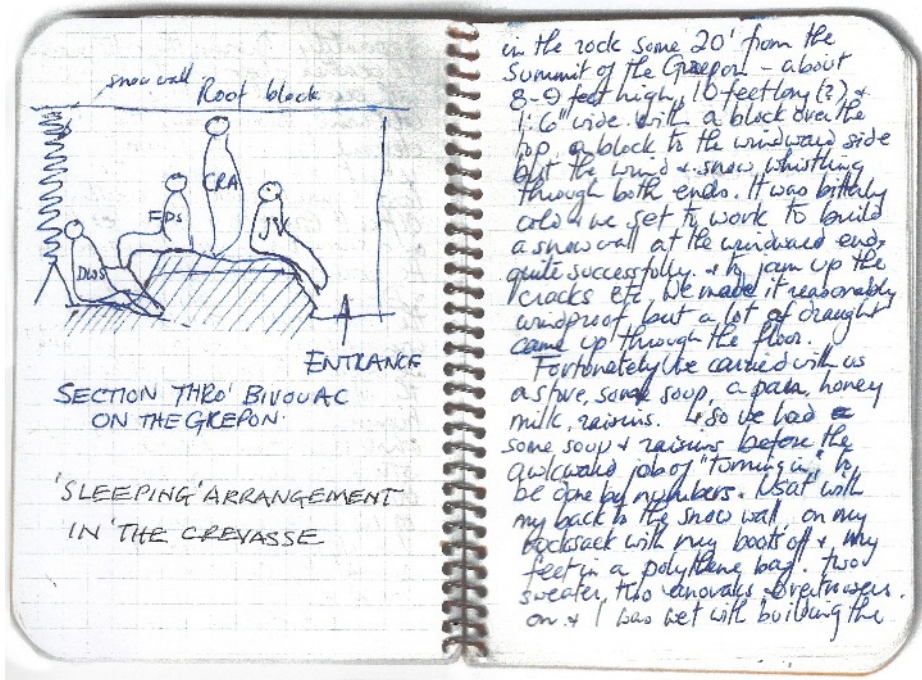 snow wall
Roof block
CRA
EPS
JV
DWS
ENTRANCE
SECTION THRO' BIVOUAC
ON THE GREPON.
'SLEEPING' ARRANGEMENT
IN THE CREVASSE
in the rock some 20' from the
summit of the Grepon - about
8-9 feet high, 10 feet long (?) &
1'.6" wide. with a block over the
top, a block to the windward side
but the wind & snow whistling
through both ends. It was bitterly
cold & we set to work to build
a snow wall at the windward end,
quite successfully. & to jam up the
cracks etc. We made it reasonably
windproof, but a lot of draught
came up through the floor.
Fortunately we carried with us
a stove, some soup, a pan, honey
milk, raisins. & so we had
some soup & raisins before the
awkward job of "turning in" to
be done by numbers. I sat with
my back to the snow wall, on my
rocksack with my boots off & my
feet in a polythene bag. two
sweater, two anoraks & overtrousers.
on & I was wet with building the